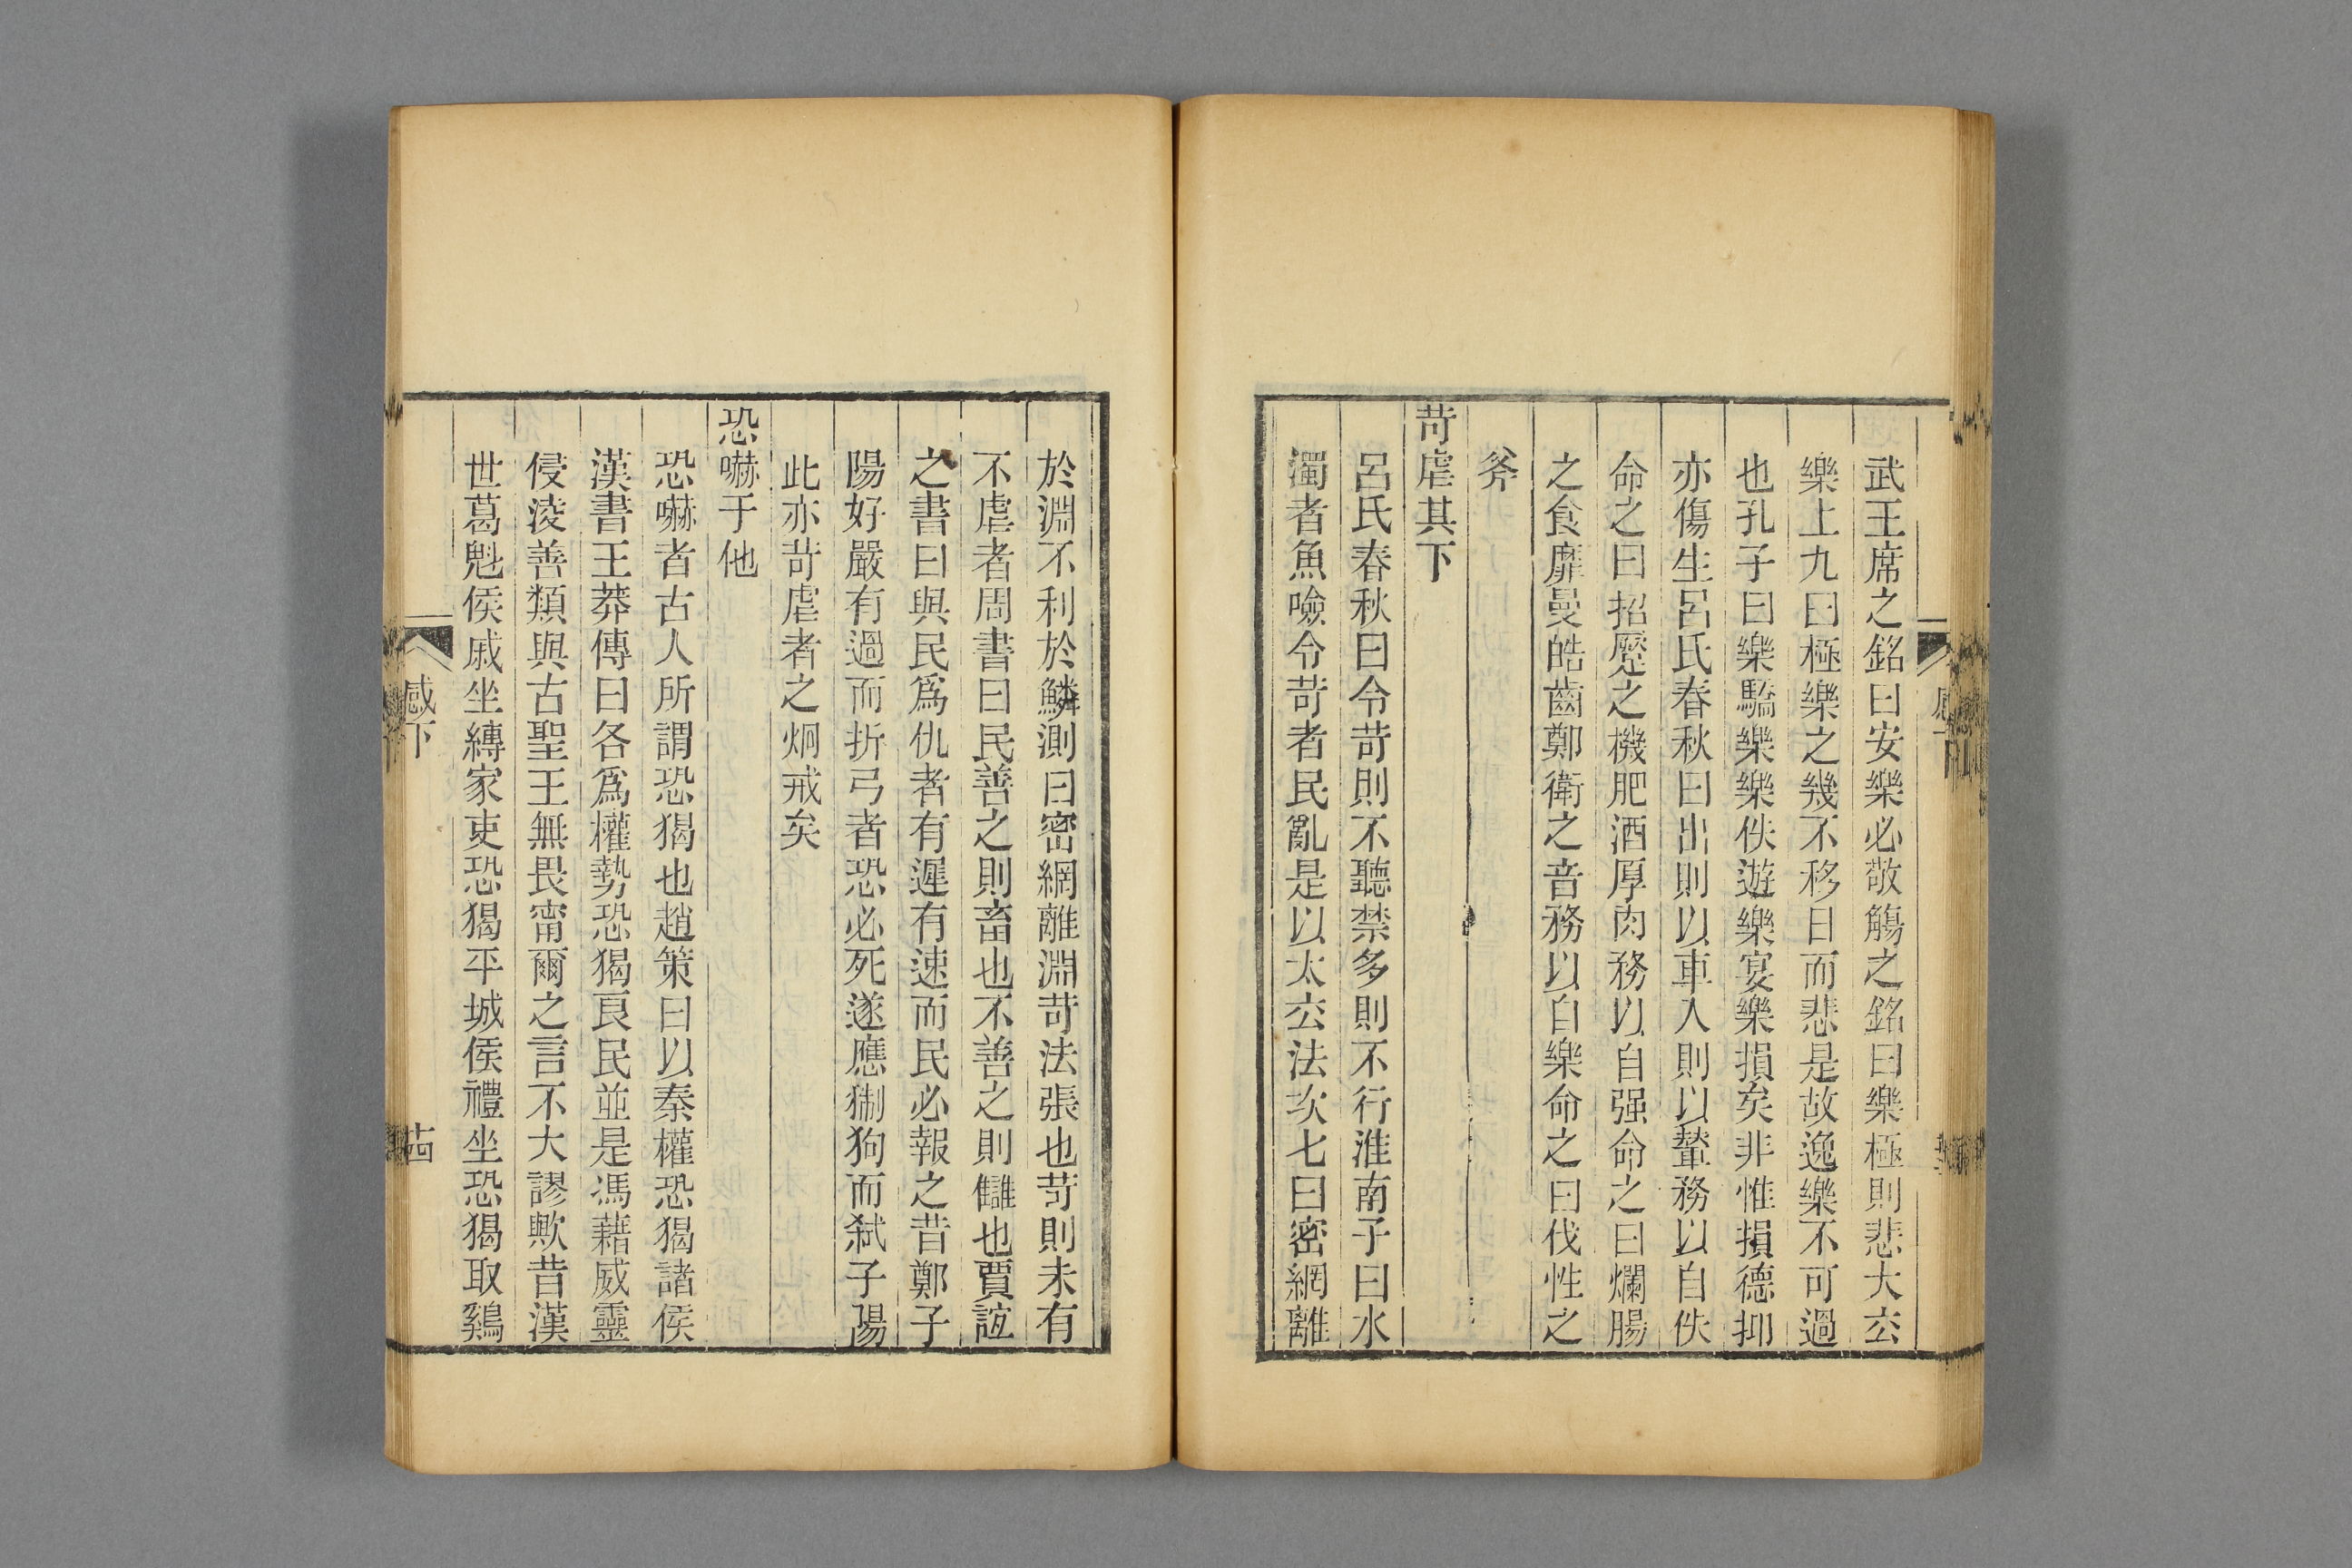 武王席之銘曰安樂必敬觴之銘曰樂極則悲大玄
樂上九曰極樂之幾不移日而悲是故逸樂不可過
也孔子曰樂驕樂樂佚遊樂宴樂損矣非惟損德抑
亦傷生呂氏春秋曰出則以車入則以輦務以自佚
命之曰招蹷之機肥酒厚肉務以自强命之曰爛腸
之食靡曼皓齒鄭衛之音務以自樂命之曰伐性之
斧
苛虐其下
呂氏春秋曰令苛則不聽禁多則不行淮南子曰水
濁者魚噞令苛者民亂是以太玄法次七曰密網離
於淵不利於鱗測曰密網離淵苛法張也苛則未有
不虐者周書曰民善之則畜也不善之則讎也賈誼
之書曰與民爲仇者有遲有速而民必報之昔鄭子
陽好嚴有過而折弓者恐必死遂應猘狗而弒子陽
此亦苛虐者之炯戒矣
恐嚇于他
恐嚇者古人所謂恐猲也趙策曰以秦權恐猲諸侯
漢書王莽傳曰各爲權勢恐猲良民並是馮藉威靈
侵淩善類與古聖王無畏甯爾之言不大謬歟昔漢
世葛魁侯戚坐縛家吏恐猲平城侯禮坐恐猲取鷄
感下
茜